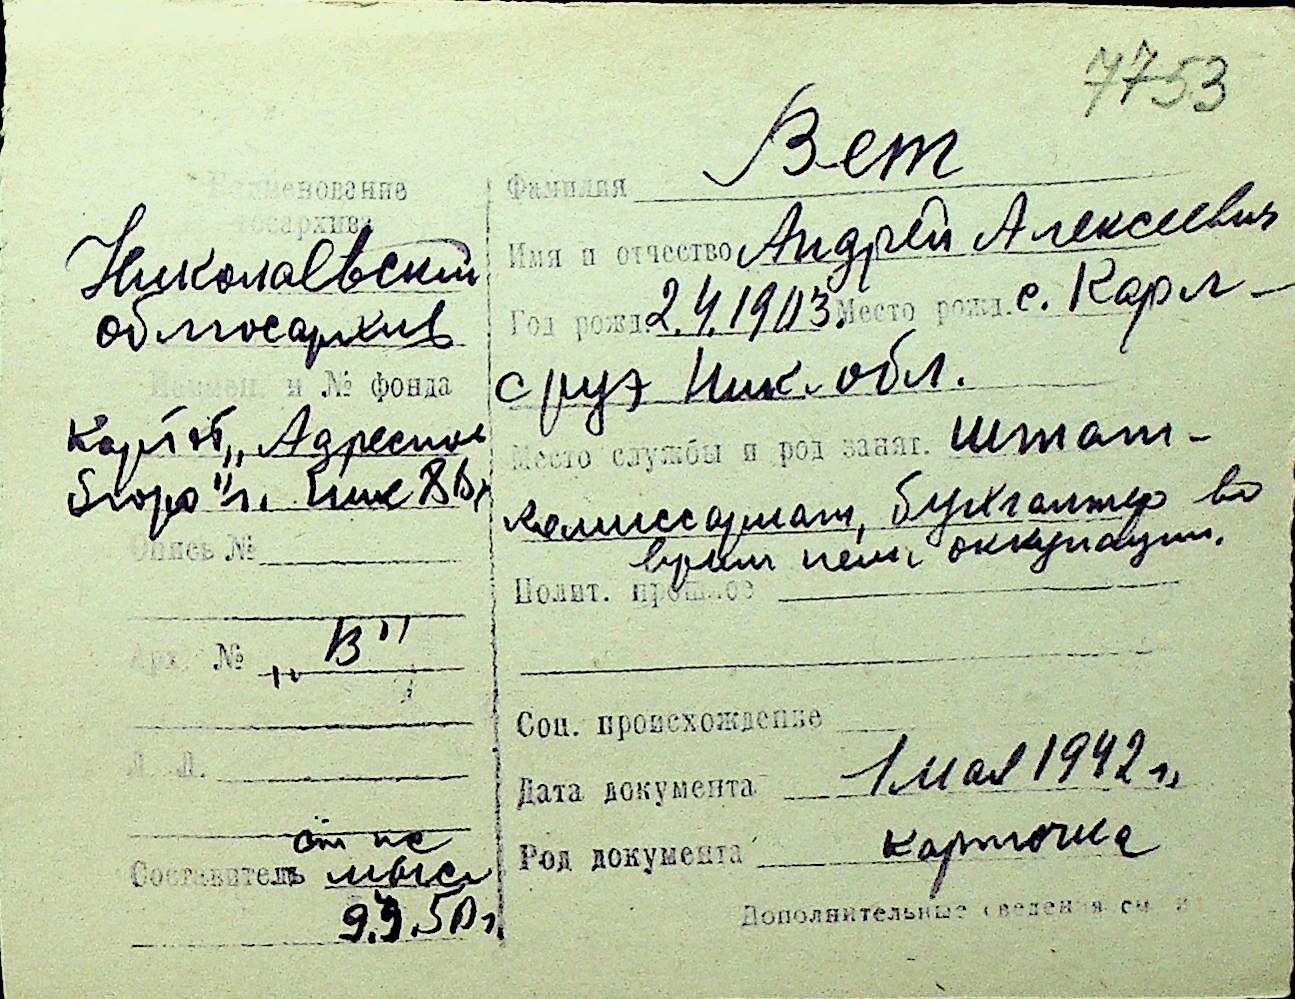 7753
Наименование
госархива
Николаевский
облгосархив
Наимен. и № фонда
Картот. „Адресное
бюро" г.
Опись №
Арх. № „В"
Л. Л.
Составитель
9.9.50 г.
Фамилия Вет
Имя и отчество Андрей Алексеевич
Год рожд. 2.4.1903. Место рожд. с. Карл-
сруэ Ник. обл.
Место службы и род занят. штат-
комиссариат, бухгалтер во
время нем. оккупации.
Полит. прошлое
Соц. происхождение
Дата документа 1 мая 1942 г.
Род документа карточка
Дополнительные сведения см.